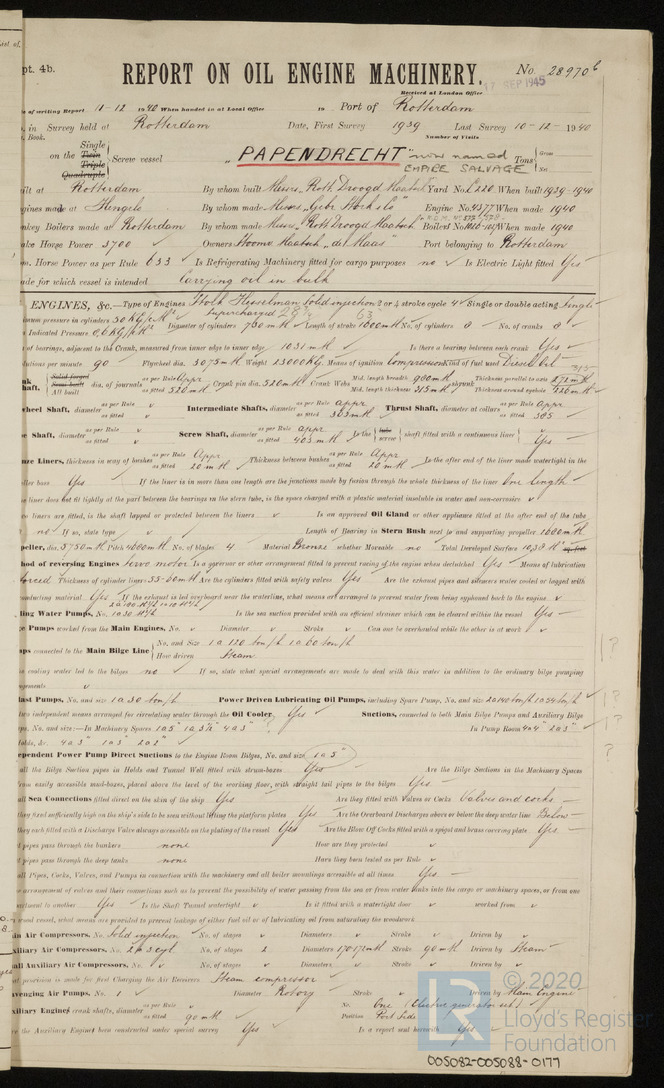 pt. 4b. REPORT ON OIL ENGINE MACHINERY. No. 28970b
Received at London Office 17 SEP 1945
of writing Report 11-12 1940 When handed in at Local Office 19 Port of Rotterdam
in Survey held at Rotterdam Date, First Survey 1939 Last Survey 10-12-1940
Book. Number of Visits
on the Single Twin Triple Quadruple Screw vessel "PAPENDRECHT" now named EMPIRE SALVAGE Tons Gross Net
ilt at Rotterdam By whom built Messrs. Rott. Droogd. Maatsch Yard No. 220 When built 1939-1940
gines made at Hengelo By whom made Messrs. Gebr. Stork & Co Engine No. 4377 When made 1940
nkey Boilers made at Rotterdam By whom made Messrs. Rott. Droogd. Maatsch. Boilers No. When made 1940
ake Horse Power 3700 Owners Stoomv. Maatsch. "de Maas" Port belonging to Rotterdam
m. Horse Power as per Rule 633 Is Refrigerating Machinery fitted for cargo purposes no Is Electric Light fitted Yes
ade for which vessel is intended Carrying oil in bulk
ENGINES, &c.—Type of Engines Stork Hesselman Solid injection 2 or 4 stroke cycle 4 Single or double acting Single
Supercharged
imum pressure in cylinders 50 Kg/cm² Diameter of cylinders 750 m Length of stroke 1600 No. of cylinders 8 No. of cranks 8
Indicated Pressure
of bearings, adjacent to the Crank, measured from inner edge to inner edge 1031 Is there a bearing between each crank Yes
lutions per minute 90 Flywheel dia. 3075 Weight 23000 Kg. Means of ignition Compression Kind of fuel used Diesel oil
Solid forged Semi-built All built dia. of journals as per Rule Appr as fitted 520 Crank pin dia. 520 Crank Webs Mid. length breadth 900 Mid. length thickness 315 shrunk Thickness parallel to axis Thickness around eyehole
heel Shaft, diameter as per Rule as fitted Intermediate Shafts, diameter as per Rule appr as fitted 363 Thrust Shaft, diameter at collars as per Rule appr as fitted 385
e Shaft, diameter as per Rule as fitted Screw Shaft, diameter as per Rule appr as fitted 403 Is the tube screw shaft fitted with a continuous liner Yes
nze Liners, thickness in way of bushes as per Rule Appr as fitted 20 Thickness between bushes as per Rule Appr as fitted 20 Is the after end of the liner made watertight in the
ller boss Yes If the liner is in more than one length are the junctions made by fusion through the whole thickness of the liner One length
e liner does not fit tightly at the part between the bearings in the stern tube, is the space charged with a plastic material insoluble in water and non-corrosive
o liners are fitted, is the shaft lapped or protected between the liners Is an approved Oil Gland or other appliance fitted at the after end of the tube
no If so, state type Length of Bearing in Stern Bush next to and supporting propeller 1600
peller, dia. 5750 Pitch 4600 No. of blades 4 Material Bronze whether Moveable no Total Developed Surface 10,38
hod of reversing Engines Servo motor Is a governor or other arrangement fitted to prevent racing of the engine when declutched Yes Means of lubrication
forced Thickness of cylinder liners 55-50 Are the cylinders fitted with safety valves Yes Are the exhaust pipes and silencers water cooled or lagged with
nducting material Yes If the exhaust is led overboard near the waterline, what means are arranged to prevent water being syphoned back to the engine
ling Water Pumps, No. Is the sea suction provided with an efficient strainer which can be cleared within the vessel Yes
e Pumps worked from the Main Engines, No. Diameter Stroke Can one be overhauled while the other is at work
ps connected to the Main Bilge Line No. and Size 1 a 120 ton/h 1 a 60 ton/h
How driven Steam
e cooling water led to the bilges no If so, state what special arrangements are made to deal with this water in addition to the ordinary bilge pumping
ngements
last Pumps, No. and size 1 a 30 ton/h Power Driven Lubricating Oil Pumps, including Spare Pump, No. and size
two independent means arranged for circulating water through the Oil Cooler Yes Suctions, connected to both Main Bilge Pumps and Auxiliary Bilge
ps. No. and size:—In Machinery Spaces 1 a 5" 1 a 3½" 4 a 3" In Pump Room 4 a 4" 2 a 3"
olds, &c. 4 a 3" 1 a 3" 2 a 3"
ependent Power Pump Direct Suctions to the Engine Room Bilges, No. and size 1 a 5"
all the Bilge Suction pipes in Holds and Tunnel Well fitted with strum-boxes Yes Are the Bilge Suctions in the Machinery Spaces
rom easily accessible mud-boxes, placed above the level of the working floor, with straight tail pipes to the bilges Yes
all Sea Connections fitted direct on the skin of the ship Yes Are they fitted with Valves or Cocks Valves and cocks
they fixed sufficiently high on the ship's side to be seen without lifting the platform plates Yes Are the Overboard Discharges above or below the deep water line Below
they each fitted with a Discharge Valve always accessible on the plating of the vessel Yes Are the Blow Off Cocks fitted with a spigot and brass covering plate Yes
t pipes pass through the bunkers none How are they protected
t pipes pass through the deep tanks none Have they been tested as per Rule
all Pipes, Cocks, Valves, and Pumps in connection with the machinery and all boiler mountings accessible at all times Yes
e arrangement of valves and their connections such as to prevent the possibility of water passing from the sea or from water tanks into the cargo or machinery spaces, or from one
artment to another Yes Is the Shaft Tunnel watertight Is it fitted with a watertight door worked from
wood vessel, what means are provided to prevent leakage of either fuel oil or of lubricating oil from saturating the woodwork
in Air Compressors, No. Solid injection No. of stages Diameters Stroke Driven by
xiliary Air Compressors, No. 2 a 3 cyl. No. of stages 2 Diameters 170-171 Stroke 90 Driven by Steam
all Auxiliary Air Compressors, No. No. of stages Diameters Stroke Driven by
t provision is made for first Charging the Air Receivers Steam compressor
venging Air Pumps, No. 1 Diameter Rotary Stroke Driven by Main Engine
xiliary Engines crank shafts, diameter as per Rule as fitted 90 No. One (Electric generator set) Position Port Side
e the Auxiliary Engines been constructed under special survey Yes Is a report sent herewith Yes
© 2020
LR
Lloyd's Register
Foundation
005082-005088-0177